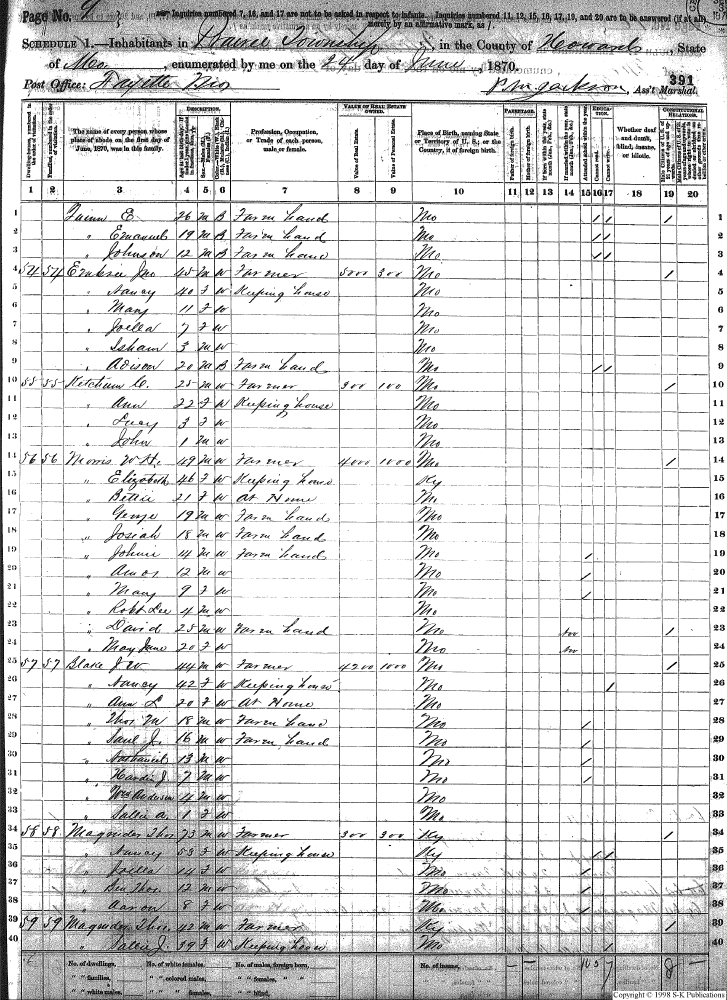 Page No. 9
Inquiries numbered 7, 16, and 17 are not to be asked in respect to infants. Inquiries numbered 11, 12, 15, 16, 17, 19, and 20 are to be answered (if at all) merely by an affirmative mark, as /
SCHEDULE 1.—Inhabitants in Township, in the County of Howard, State
of Mo., enumerated by me on the 24 day of June, 1870.
391
Post Office: Fayette Ass't Marshal.
DESCRIPTION. VALUE OF REAL ESTATE OWNED. PARENTAGE. EDUCATION. CONSTITUTIONAL RELATIONS.
The name of every person whose place of abode on the first day of June, 1870, was in this family. Profession, Occupation, or Trade of each person, male or female. Value of Real Estate. Value of Personal Estate. Place of Birth, naming State or Territory of U. S.; or the Country, if of foreign birth. Father of foreign birth. Mother of foreign birth. Attended school within the year. Cannot read. Cannot write. Whether deaf and dumb, blind, insane, or idiotic.
1 2 3 4 5 6 7 8 9 10 11 12 13 14 15 16 17 18 19 20
1 E. 26 M B Farm hand Mo / / / 1
2 " Emanuel 19 M B Farm hand Mo / / 2
3 " Johnson 12 M B Farm hand Mo / / 3
4 54 54 Embree Jno 45 M W Farmer 5000 300 Mo / 4
5 " Nancy 40 F W Keeping house Mo 5
6 " Mary 11 F W Mo 6
7 " Joella 7 F W Mo 7
8 " Isham 3 M W Mo 8
9 " Adison 20 M B Farm hand Mo / / 9
10 55 55 Ketchum C. 25 M W Farmer 300 100 Mo / 10
11 " Ann 22 F W Keeping house Mo 11
12 " Lucy 3 F W Mo 12
13 " John 1 M W Mo 13
14 56 56 Morris W H. 49 M W Farmer 4000 1000 Mo / 14
15 " Elizabeth 46 F W Keeping house Ky 15
16 " Bettie 21 F W At Home Mo 16
17 " George 19 M W Farm hand Mo 17
18 " Josiah 18 M W Farm hand Mo 18
19 " Johnie 14 M W Farm hand Mo / 19
20 " Amos 12 M W Mo / 20
21 " Mary 9 F W Mo / 21
22 " Robt Lee 4 M W Mo 22
23 " David 25 M W Farm hand Mo Nov / 23
24 " Mary Jane 20 F W Mo Nov 24
25 57 57 Blake J. W 44 M W Farmer 4200 1000 Mo / 25
26 " Nancy 42 F W Keeping house Mo / 26
27 " Ann L 20 F W At Home Mo 27
28 " Thos M 18 M W Farm hand Mo / 28
29 " Saul J. 16 M W Farm hand Mo / 29
30 " Nathaniel 13 M W Mo / 30
31 " Hardin J. 7 M W Mo / 31
32 " Wm Anderson 4 M W Mo 32
33 " Sallie A. 1 F W Mo 33
34 58 58 Magruder Thos 73 M W Farmer 300 300 Ky / 34
35 " Nancy 53 F W Keeping house Ky / / 35
36 " Joella 14 F W Mo / 36
37 " Ben Thos. 12 M W Mo / 37
38 " Aaron 8 F W Mo / 38
39 59 59 Magruder Thos. 42 M W Farmer Ky / 39
40 " Sallie J. 39 F W Keeping house Mo / 40
No. of dwellings, No. of white females, No. of males, foreign born, No. of insane,
" " families, " " colored males, " " females, " "
" " white males, " " " females, " " blind,
Copyright © 1998 S-K Publications